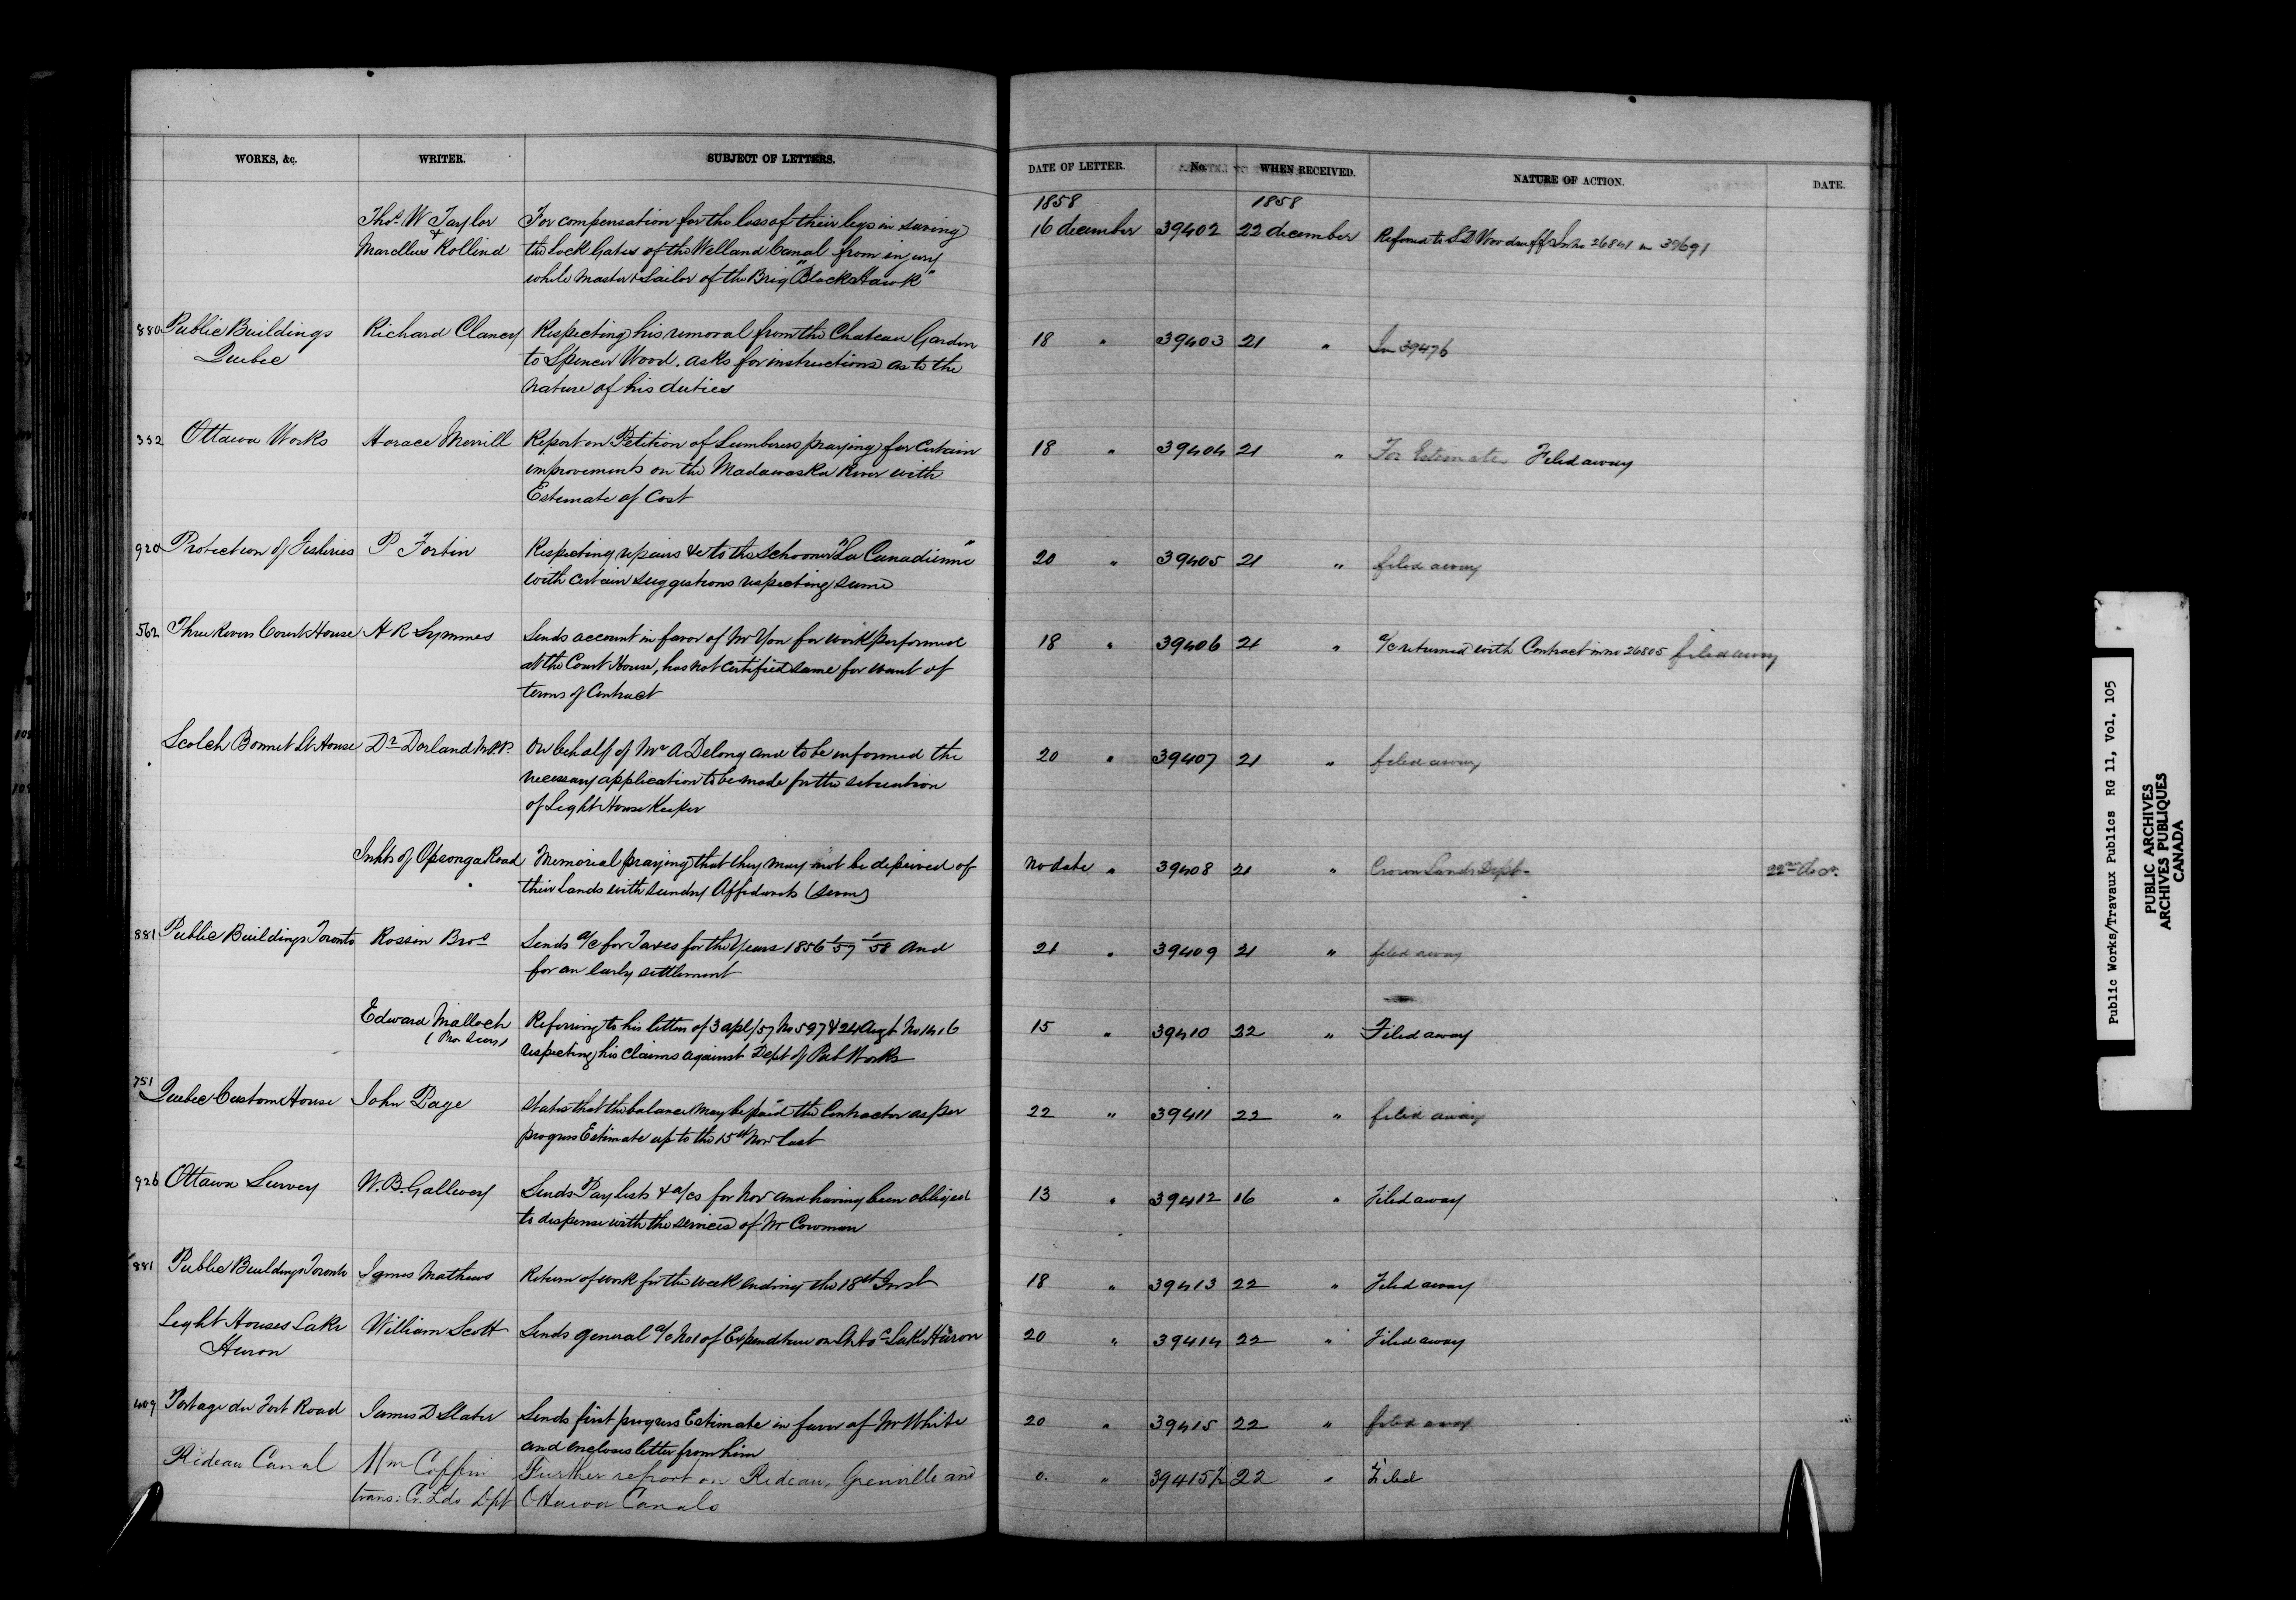 WORKS, &c. WRITER. SUBJECT OF LETTERS. DATE OF LETTER. No. WHEN RECEIVED. NATURE OF ACTION. DATE.
1858 1858
Thos. W Taylor For compensation for the loss of their legs in saving 16 december 39402 22 december Referred to S D Woodruff In no 26841 in 39691
& Marcellus Rollind the Lock Gates of the Welland Canal from injury
while Master & Sailor of the Brig "Black Hawk"
880 Public Buildings Richard Clancy Respecting his removal from the Chateau Garden 18 " 39403 21 " In 39476
Quebec to Spencer Wood. asks for instructions as to the
nature of his duties
332 Ottawa Works Horace Merrill Report on Petition of Lumberers praying for certain 18 " 39404 21 " For Estimate Filed away
improvements on the Madawaska River with
Estimate of Cost
920 Protection of Fisheries P Fortin Respecting repairs &c to the Schooner "La Canadienne" 20 " 39405 21 " filed away
with certain suggestions respecting same
562 Three Rivers Court House H R Symmes Sends account in favor of Mr Yon for work performed 18 " 39406 21 " a/c returned with Contract in no 26805 filed away
at the Court House, has not certified same for want of
terms of Contract
Scotch Bonnet Lt House Dr Dorland M.P.P. On behalf of Mr A Delong and to be informed the 20 " 39407 21 " filed away
necessary application to be made for the situation
of Light House Keeper
Inhts of Opeonga Road Memorial praying that they may not be deprived of No date " 39408 21 " Crown Lands Dept. 22nd Dec.
their lands with sundry Affidavits
881 Public Buildings Toronto Rossin Bros Sends a/c for Taxes for the Years 1856 '57 '58 and 21 " 39409 21 " filed away
for an early settlement
Edward Malloch Referring to his letters of 3 apl/57 No 597 & 24 Augt No 1416 15 " 39410 22 " Filed away
respecting his claims against Dept of Pub Works
751 Quebec Custom House John Page States that the balance may be paid the Contractor as per 22 " 39411 22 " filed away
progress Estimate up to the 15th Nov last
926 Ottawa Survey W. B. Gallwey Sends Pay lists & a/cs for Nov and having been obliged 13 " 39412 16 " Filed away
to dispense with the services of Mr Cowman
881 Public Buildings Toronto James Mathews Return of work for the week ending the 18th Inst 18 " 39413 22 " Filed away
Light Houses Lake William Scott Sends general a/c No 1 of Expenditure on Lake Huron 20 " 39414 22 " Filed away
Huron
409 Portage du Fort Road James D Slater Sends first progress Estimate in favor of Mr White 20 " 39415 22 " filed away
and encloses letter from him
Rideau Canal Wm Coffin Further report on Rideau, Grenville and 0. " 39415½ 22 " Filed
trans: Cr. Lds Dpt Ottawa Canals
Public Works/Travaux Publics RG 11, Vol. 105
PUBLIC ARCHIVES
ARCHIVES PUBLIQUES
CANADA